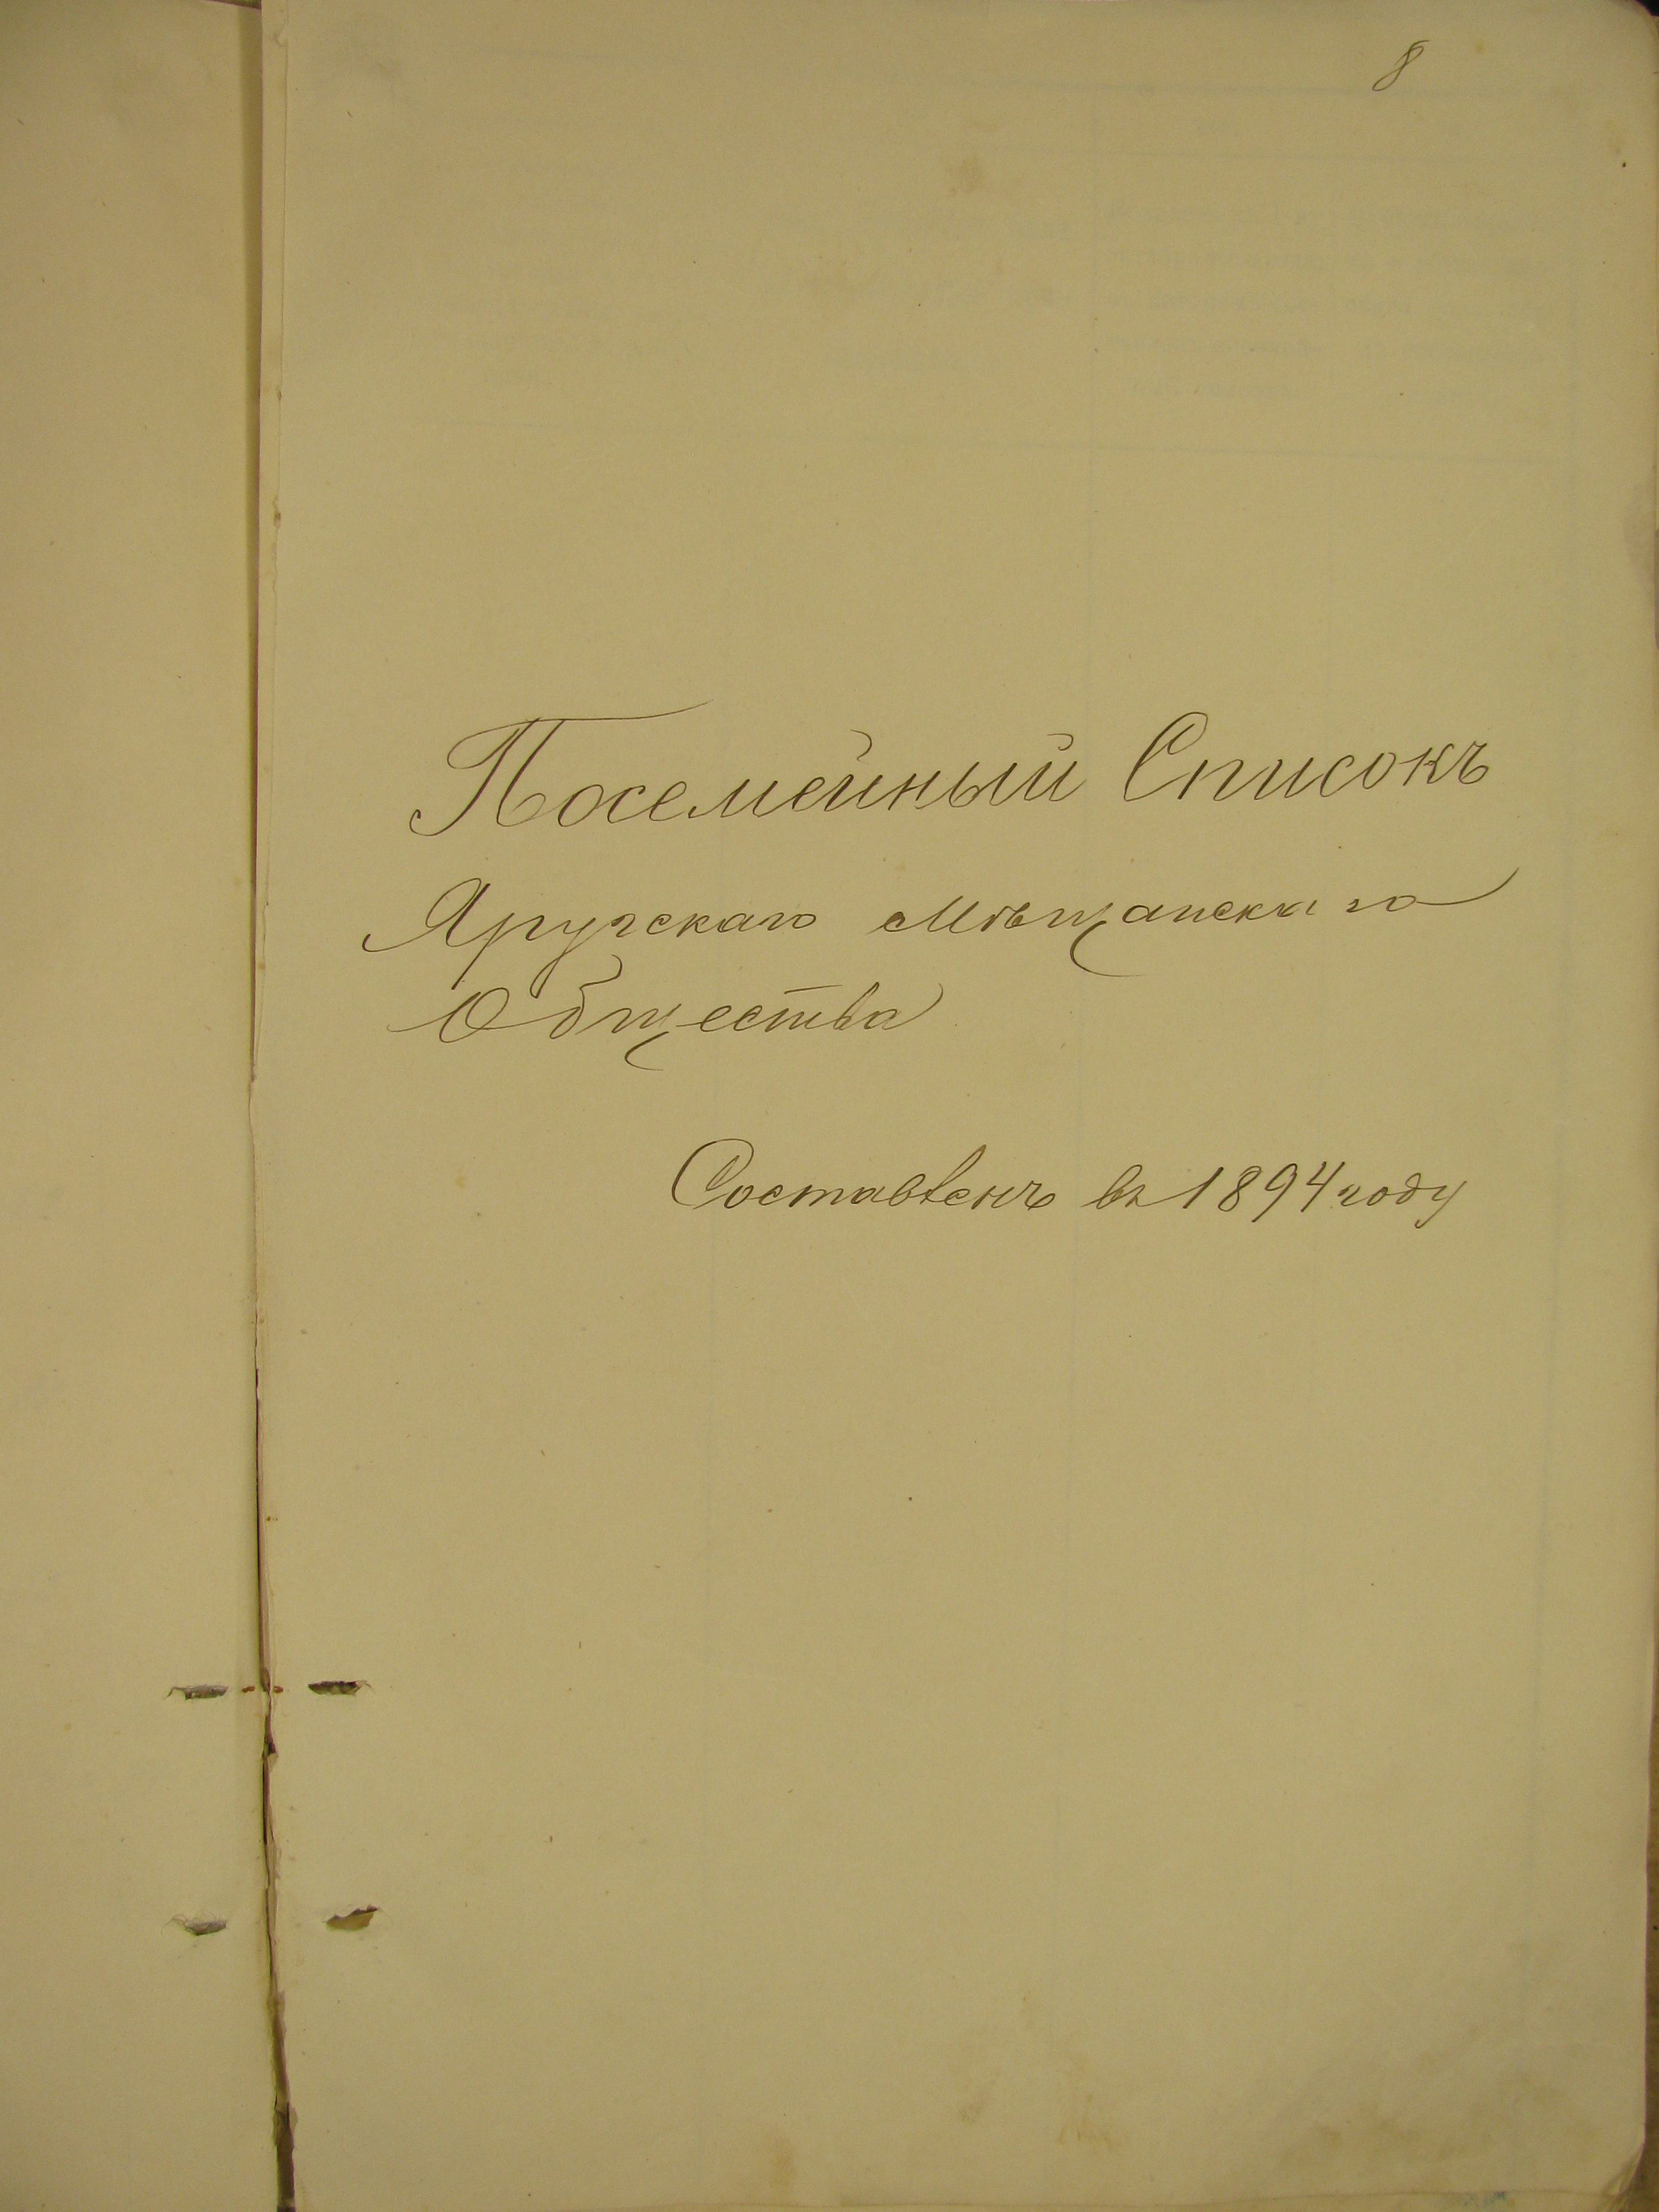 8
Посемейный Списокъ
Яругскаго Мѣщанскаго
Общества
Составленъ въ 1894 году